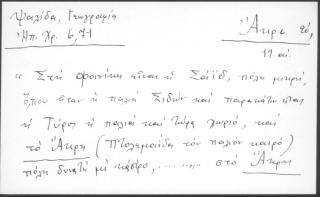 Ψαλίδα, Γεωγραφία
Ἠπ. Χρ. 6, 71
Ἄκρε τό,
19 αἰ.
« Στή φοινίκη εἶναι ἡ Σαΐδ, πόλη μικρή,
ὅπου ἦταν ἡ παλιά Σιδών καί παρακάτω εἶναι
ἡ Τύρος ἡ παλιά καί τώρα χωριό, καί
τό Ἄκρη (Πτολεμαΐδα τόν παλιόν καιρό)
πόλη δυνατή μέ κάστρο, ........, στό Ἄκρη